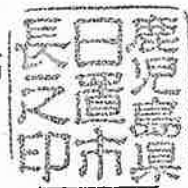 鹿児島県
日置市
長之印